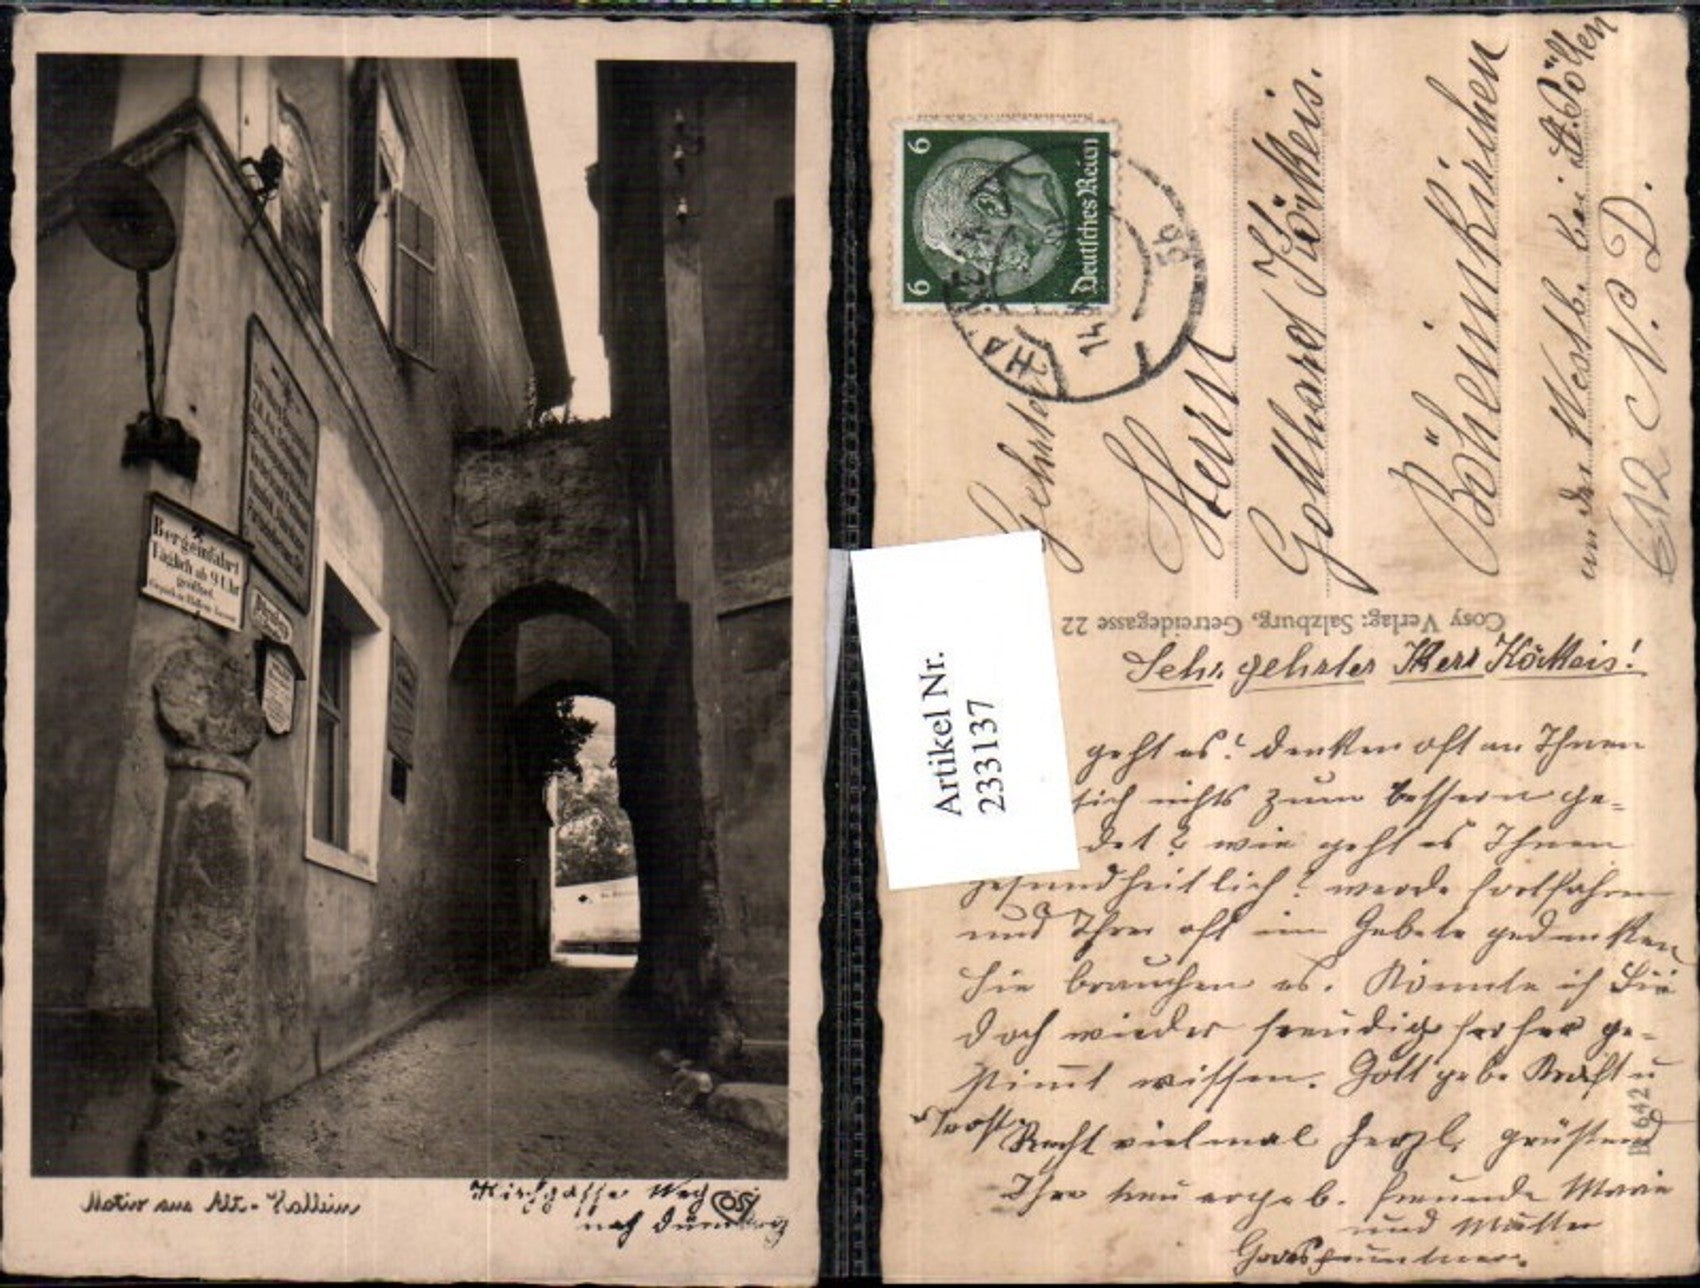 Bergeinfahrt
Täglich ab 9 Uhr
geöffnet.
Motiv aus Alt-Hallein
Kirchgasse Weg
nach Dürrnberg
COSY
6
6
Deutsches Reich
14
5b
Herrn
Gotthard
Böheimkirchen
an der Westb. bei St. Pölten
N. D.
Cosy Verlag; Salzburg, Getreidegasse 22
Artikel Nr.
233137
Sehr geehrter Herr
geht es? denken oft an Ihnen
sich nichts zum bessern ge-
det? wie geht es Ihnen
gesundheitlich? werde fortfahren
und Ihrer oft im Gebete gedenken
Sie brauchen es. Könnte ich Sie
doch wieder freudig froher ge-
stimmt wissen. Gott gebe Kraft u
Trost Recht vielmal herzl. grüssend
Ihre treu ergeb. Freunde Marie
und Mutter
B 642